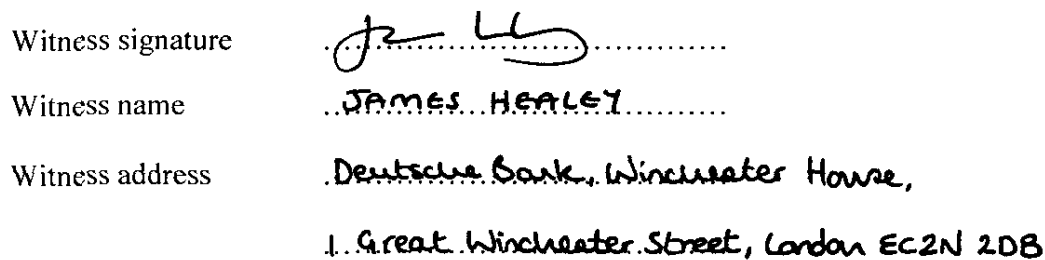 Witness signature
Witness name JAMES HEALEY
Witness address Deutsche Bank, Winchester House,
1 Great Winchester Street, London EC2N 2DB